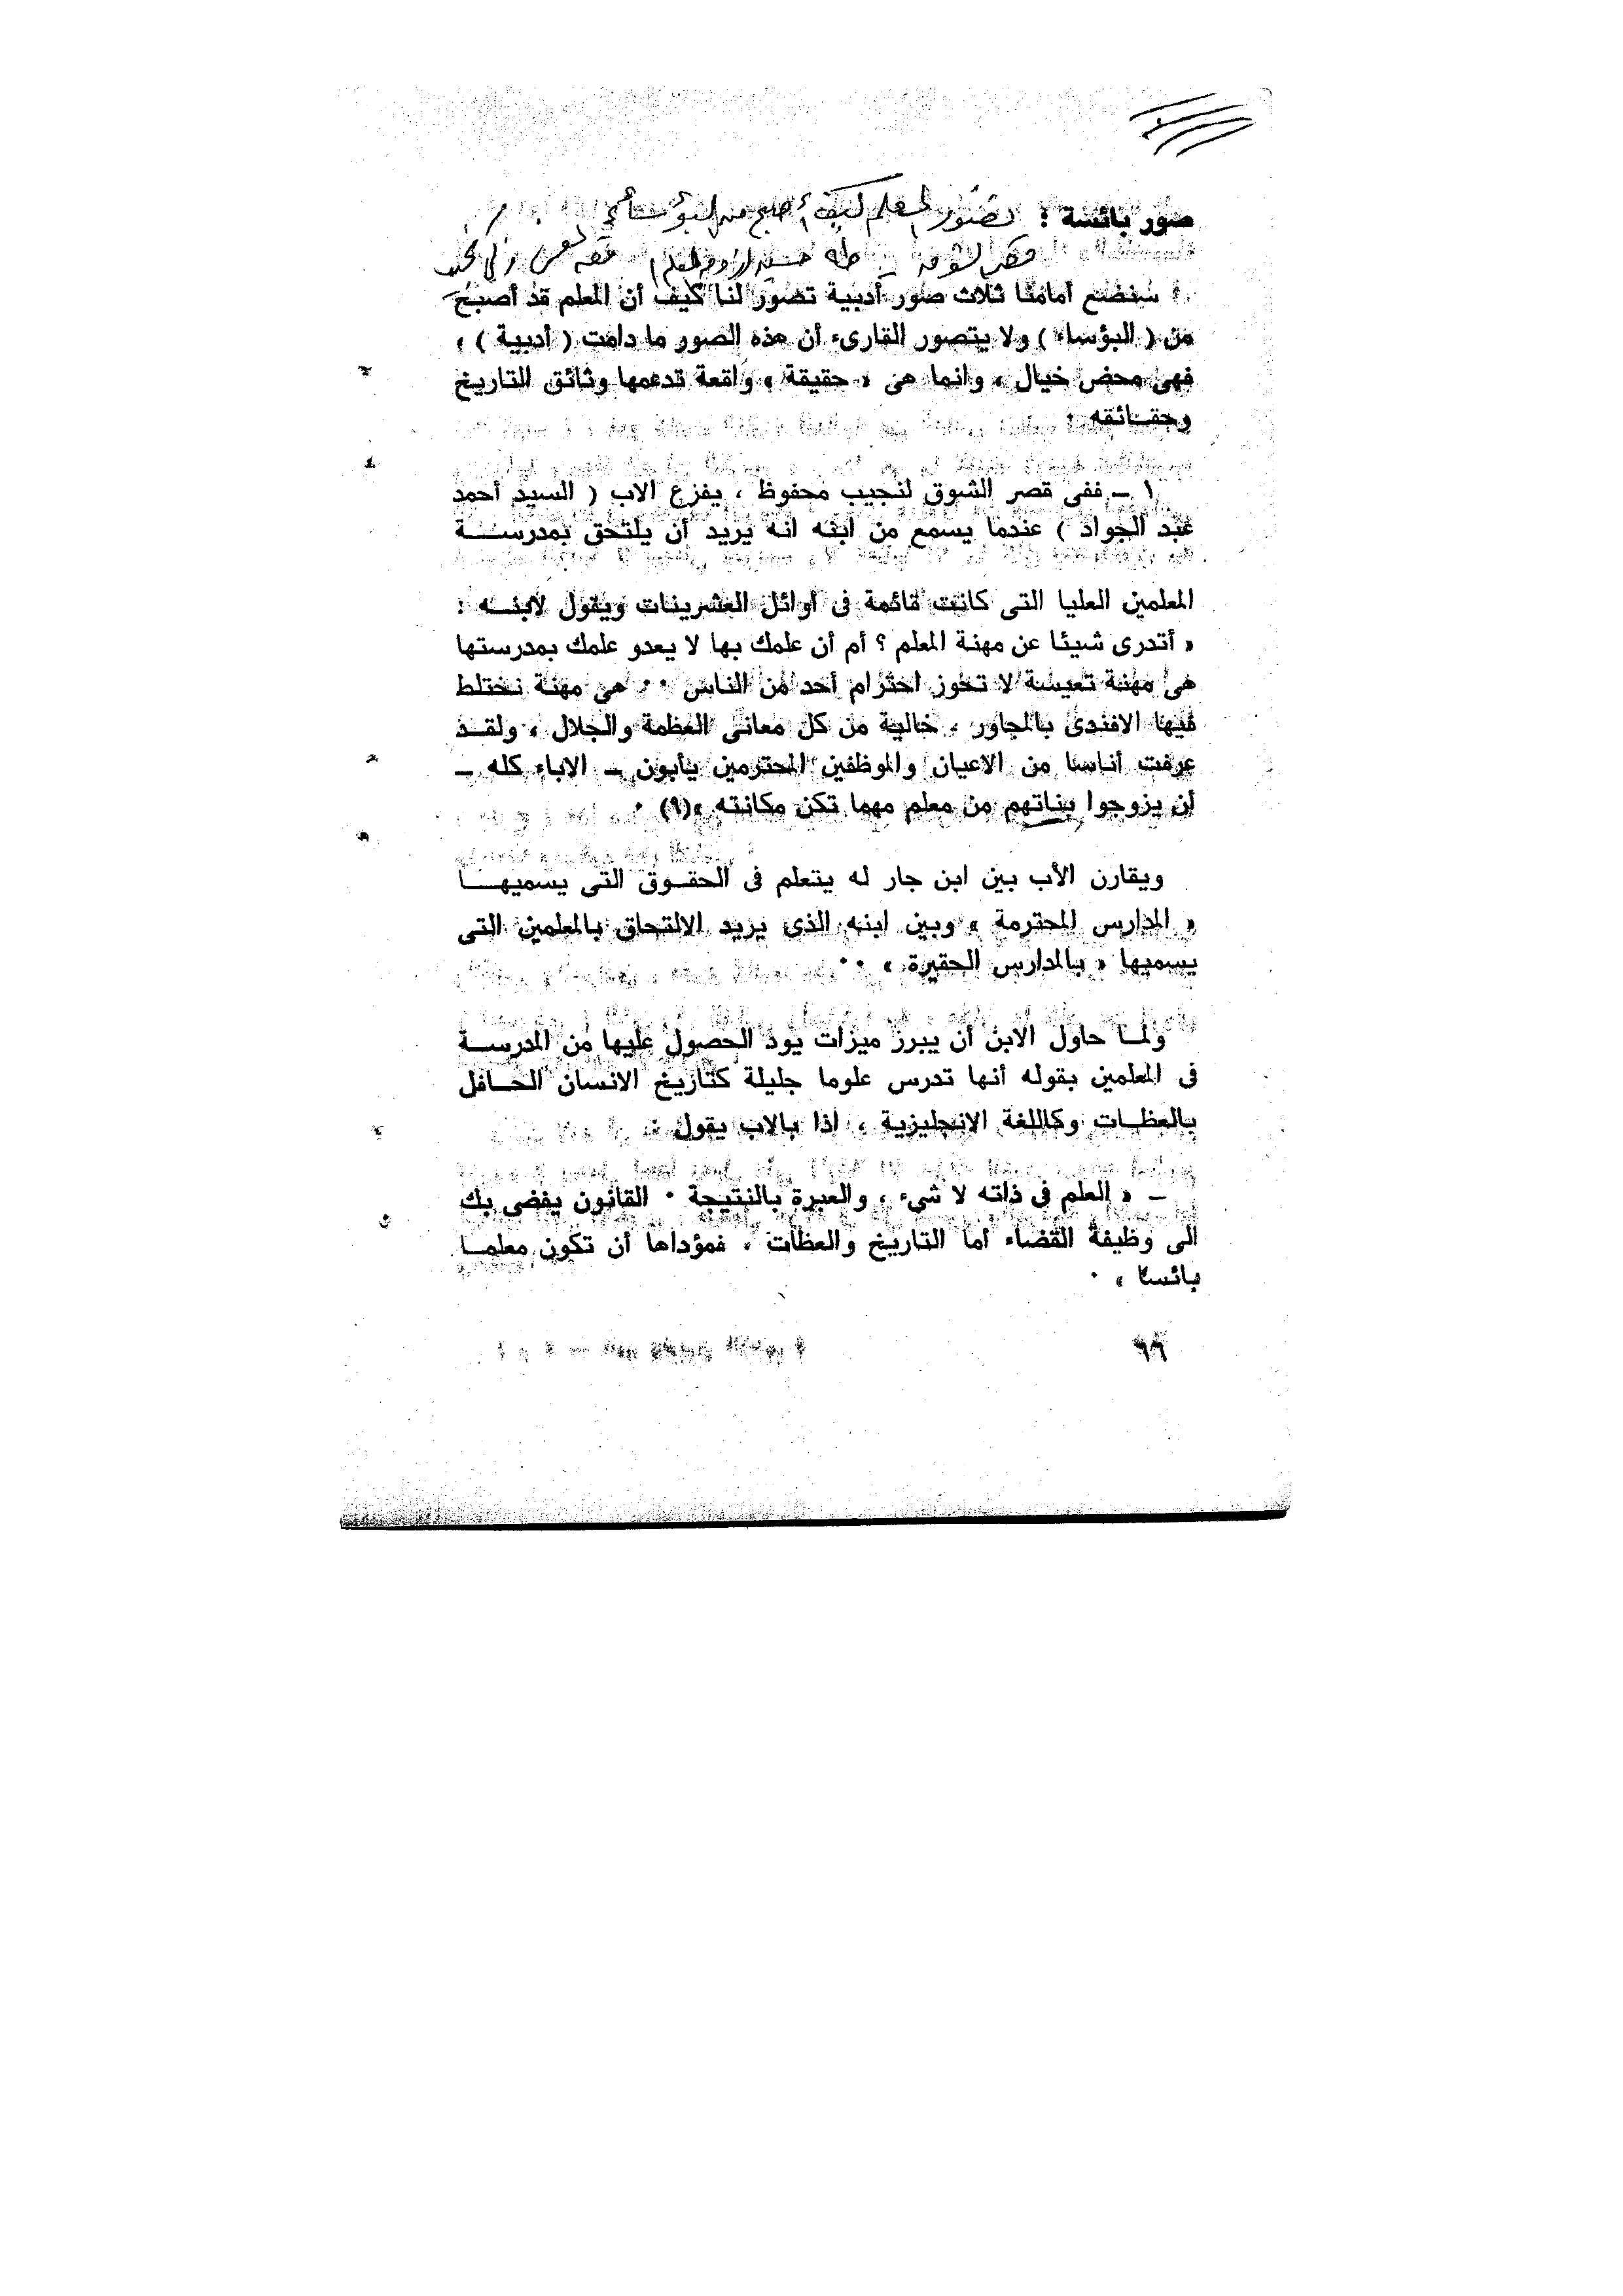 صور بائسة :
تصور المعلم كيف أصبح من البؤساء
قصر الشوق - طه حسين
سنضع أمامنا ثلاث صور أدبية تصور لنا كيف أن المعلم قد أصبح
من ( البؤساء ) ولا يتصور القارىء أن هذه الصور ما دامت ( أدبية ) ،
فهى محض خيال ، وانما هى « حقيقة » واقعة تدعمها وثائق التاريخ
وحقـائقه ٠
١ – ففى قصر الشوق لنجيب محفوظ ، يفزع الاب ( السيد أحمد
عبد الجواد ) عندما يسمع من ابنه انه يريد أن يلتحق بمدرســـة
المعلمين العليا التى كانت قائمة فى أوائل العشرينات ويقول لابنــه :
« أتدرى شيئا عن مهنة المعلم ؟ أم أن علمك بها لا يعدو علمك بمدرستها
هى مهنة تعيسة لا تحوز احترام أحد من الناس ٠٠ هى مهنة نختلط
فيها الافندى بالمجاور ، خالية من كل معانى العظمة والجلال ، ولقــد
عرفت أناسا من الاعيان والموظفين المحترمين يأبون – الاباء كله –
أن يزوجوا بناتهم من معلم مهما تكن مكانته »(٩) ٠
ويقارن الأب بين ابن جار له يتعلم فى الحقــوق التى يسميهــا
« المدارس المحترمة » وبين ابنه الذى يريد الالتحاق بالمعلمين التى
يسميها « بالمدارس الحقيرة » ٠٠
ولمــا حاول الابن أن يبرز ميزات يود الحصول عليها من المدرســة
فى المعلمين بقوله أنها تدرس علوما جليلة كتاريخ الانسان الحــافل
بالعظــات وكاللغة الانجليزية ، اذا بالاب يقول :
– « العلم فى ذاته لا شىء ، والعبرة بالنتيجة ٠ القانون يفضى بك
الى وظيفة القضاء أما التاريخ والعظات ، فمؤداها أن تكون معلمــا
بائسا » ٠
٦٦